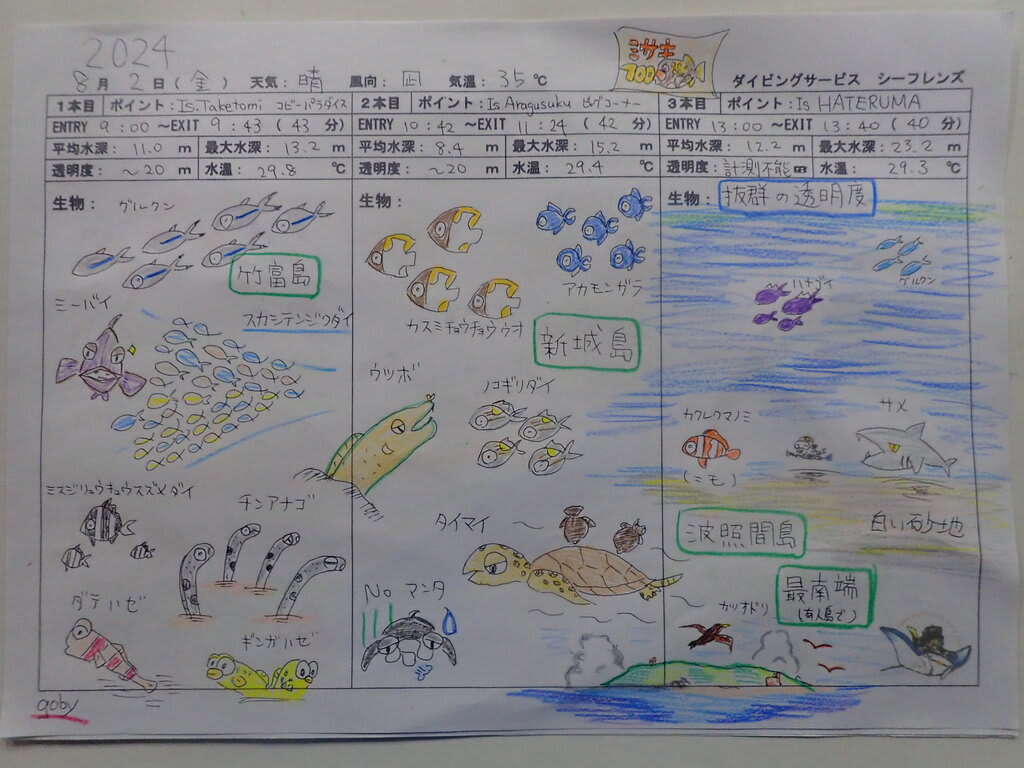 2024
8月 2日(金) 天気: 晴 風向: 凪 気温: 35℃
ミサキ
700
ダイビングサービス シーフレンズ
1本目 ポイント: Is.Taketomi コビーパラダイス
ENTRY 9:00 ~EXIT 9:43 (43 分)
平均水深: 11.0 m 最大水深: 13.2 m
透明度: ~20 m 水温: 29.8 ℃
生物: グルクン
竹富島
ミーバイ
スカシテンジクダイ
ミスジリュウキュウスズメダイ
チンアナゴ
ダテハゼ
ギンガハゼ
goby
2本目 ポイント: Is Aragusuku ビッグコーナー
ENTRY 10:42 ~EXIT 11:24 (42 分)
平均水深: 8.4 m 最大水深: 15.2 m
透明度: ~20 m 水温: 29.4 ℃
生物:
アカモンガラ
カスミチョウチョウウオ
新城島
ウツボ
ノコギリダイ
タイマイ
No マンタ
3本目 ポイント: Is HATERUMA
ENTRY 13:00 ~EXIT 13:40 (40 分)
平均水深: 12.2 m 最大水深: 23.2 m
透明度: 計測不能 m 水温: 29.3 ℃
生物: 抜群の透明度
グルクン
ハナゴイ
カクレクマノミ
(ニモ)
サメ
波照間島
白い砂地
最南端
(有人島で)
カツオドリ